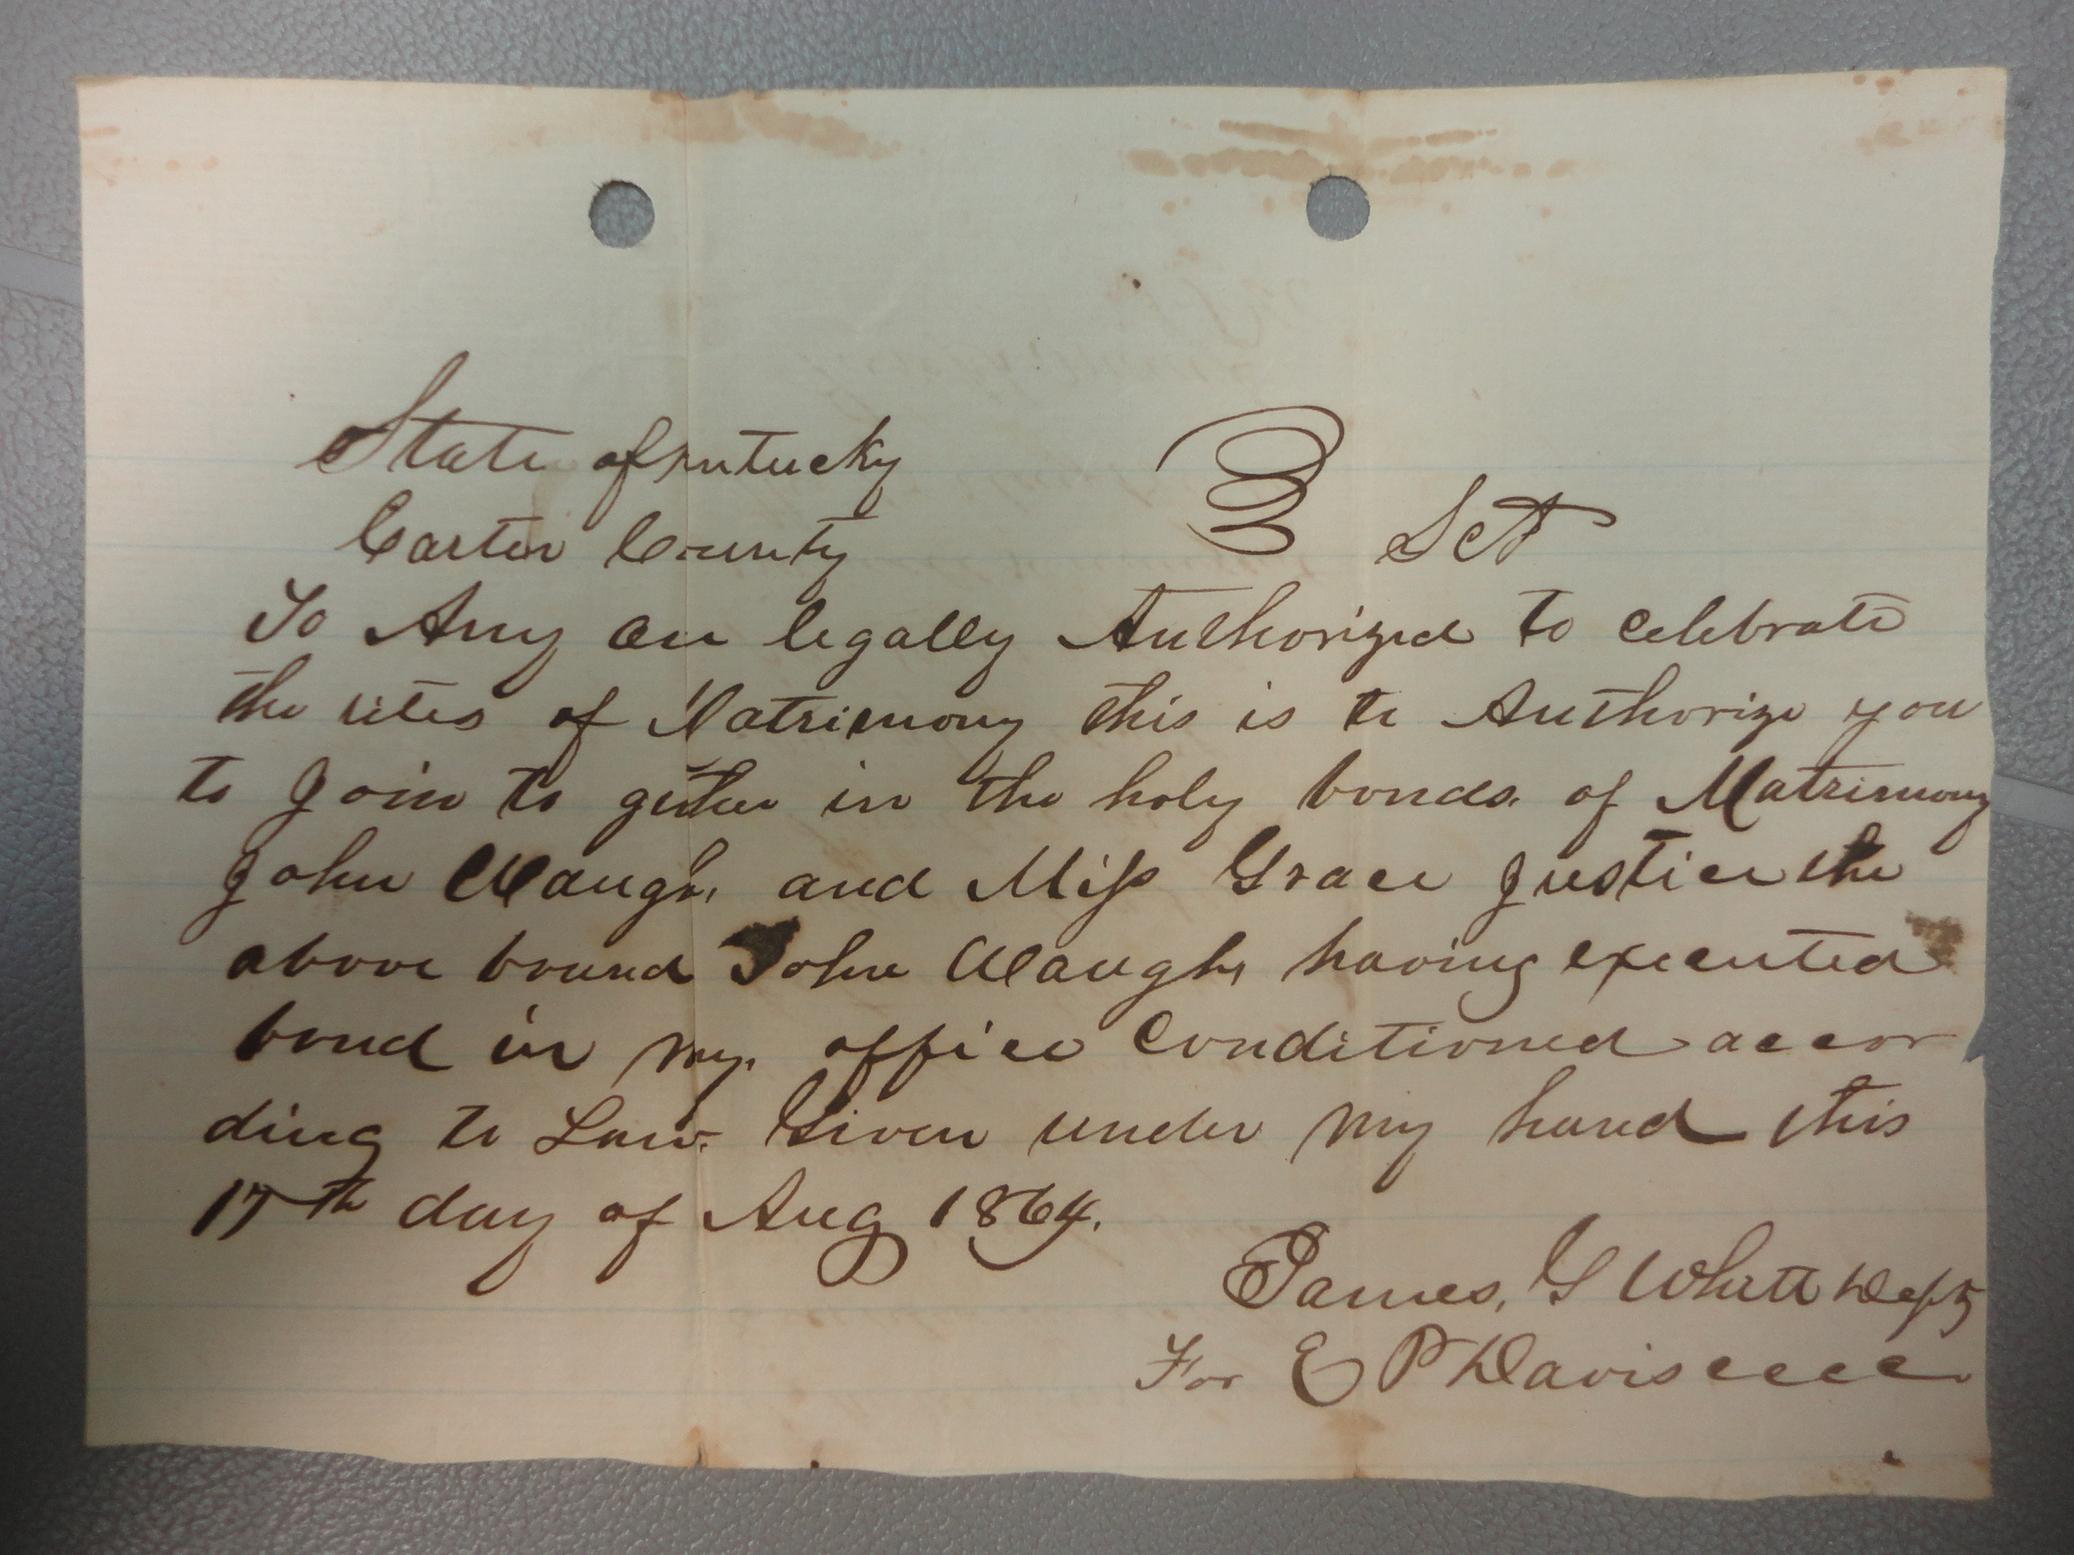 State of Kntucky
Carter County } Sct
To Any on legally Authorized to celebrate
the rites of Matrimony this is to Authorize you
to Join to gether in the holy bonds of Matrimony
John Waugh, and Miss Grace Justice the
above bound John Waugh, having executed
bond in my office Conditioned accor
ding to Law. Given under my hand this
17th day of Aug 1864.
James, G Whitt Depty
For E P Davis cccc.